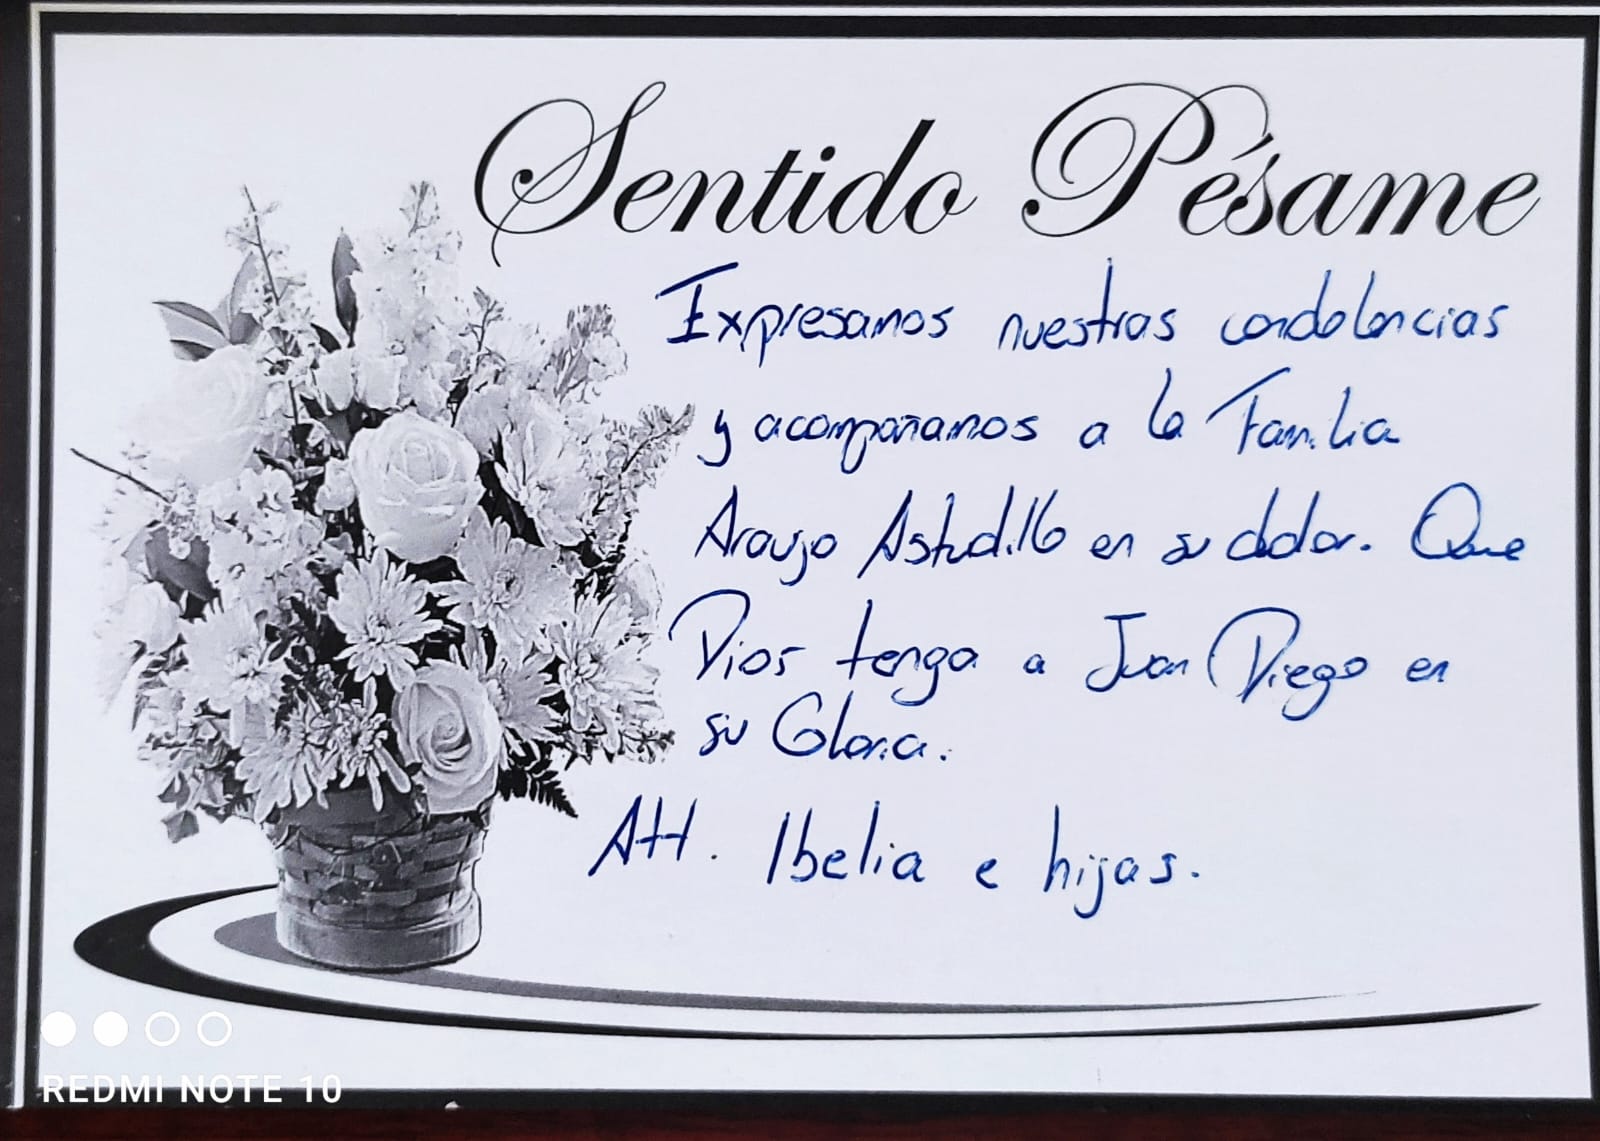 Sentido Pésame
Expresamos nuestras condolencias
y acompañamos a la Familia
Araujo Astudillo en su dolor. Que
Dios tenga a Juan Diego en
su Gloria.
Att. Ibelia e hijas.
REDMI NOTE 10